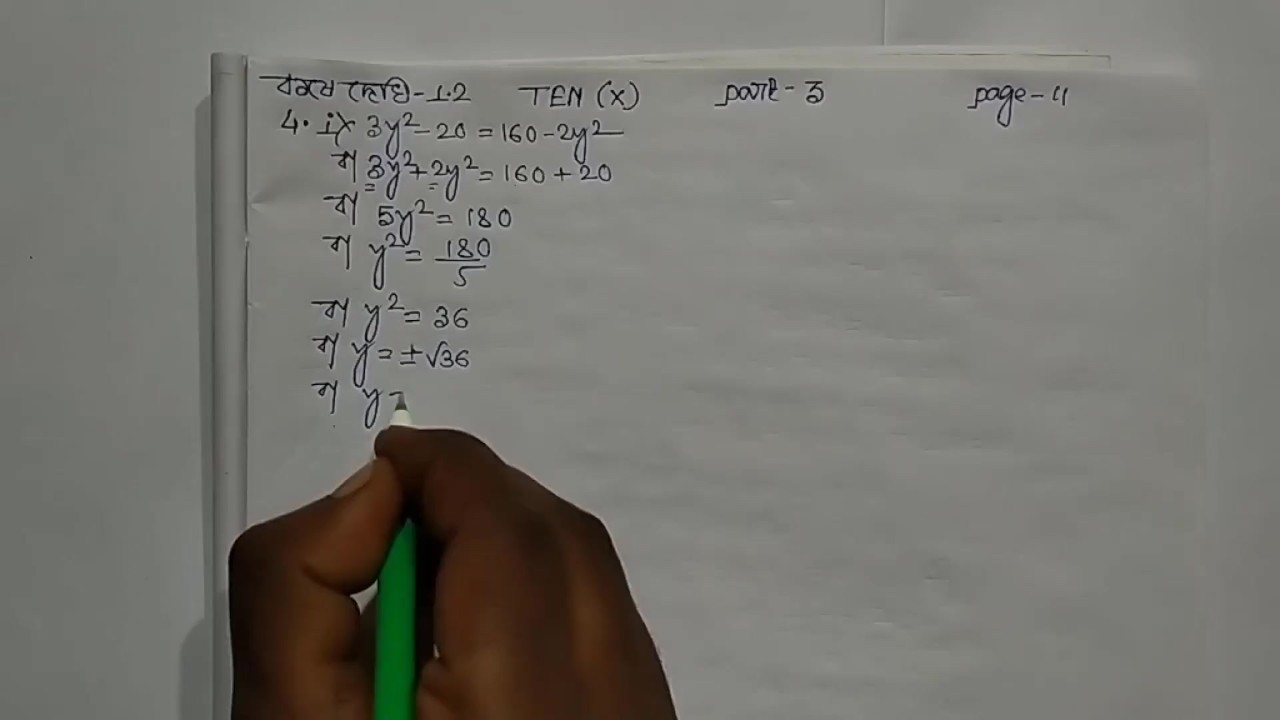 কষে দেখি-1.2 TEN (X) part-3 page-4
4. i) 3y²-20 = 160-2y²
বা 3y²+2y² = 160+20
বা 5y² = 180
বা y² = 180/5
বা y² = 36
বা y = ±√36
বা y =